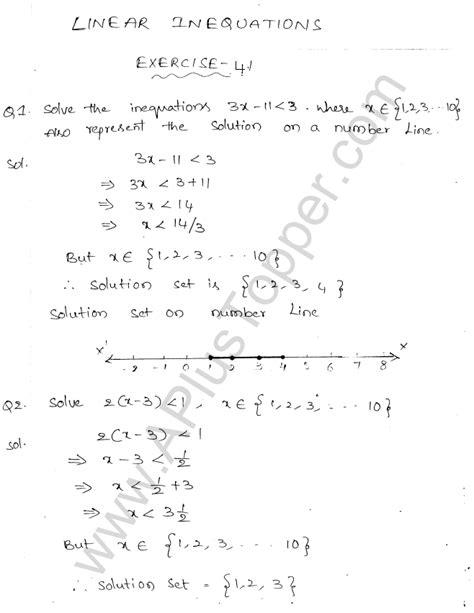 LINEAR INEQUATIONS
EXERCISE-4.1
Q1. Solve the inequations 3x-11<3. where x∈{1,2,3...10}
Also represent the solution on a number line.
Sol. 3x-11<3
⇒ 3x < 3+11
⇒ 3x < 14
⇒ x < 14/3
But x∈ {1,2,3,....10}
∴ Solution set is {1,2,3,4}
Solution set on number line
x' -2 -1 0 1 2 3 4 5 6 7 8 x
Q2. Solve 2(x-3)<1, x∈{1,2,3,....10}
Sol. 2(x-3)<1
⇒ x-3 < 1/2
⇒ x < 1/2 +3
⇒ x < 3 1/2
But x∈ {1,2,3,....10}
∴ Solution set = {1,2,3}
www.APlusTopper.com